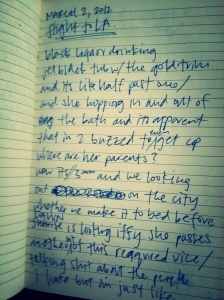 March 2, 2012
flight to LA.
black liquor drinking
jet black tub w/ the gold trim
and its lite half past one/
and she hopping in and out of
the bath and its apparent
that in 2 buzzed to even get up
where are her parents?
now its/3am and we looking
out on the city
whether we make it to bed before
DAWN
is looking iffy she passes
this required vice/
talking shit about the people
i hate but im just like